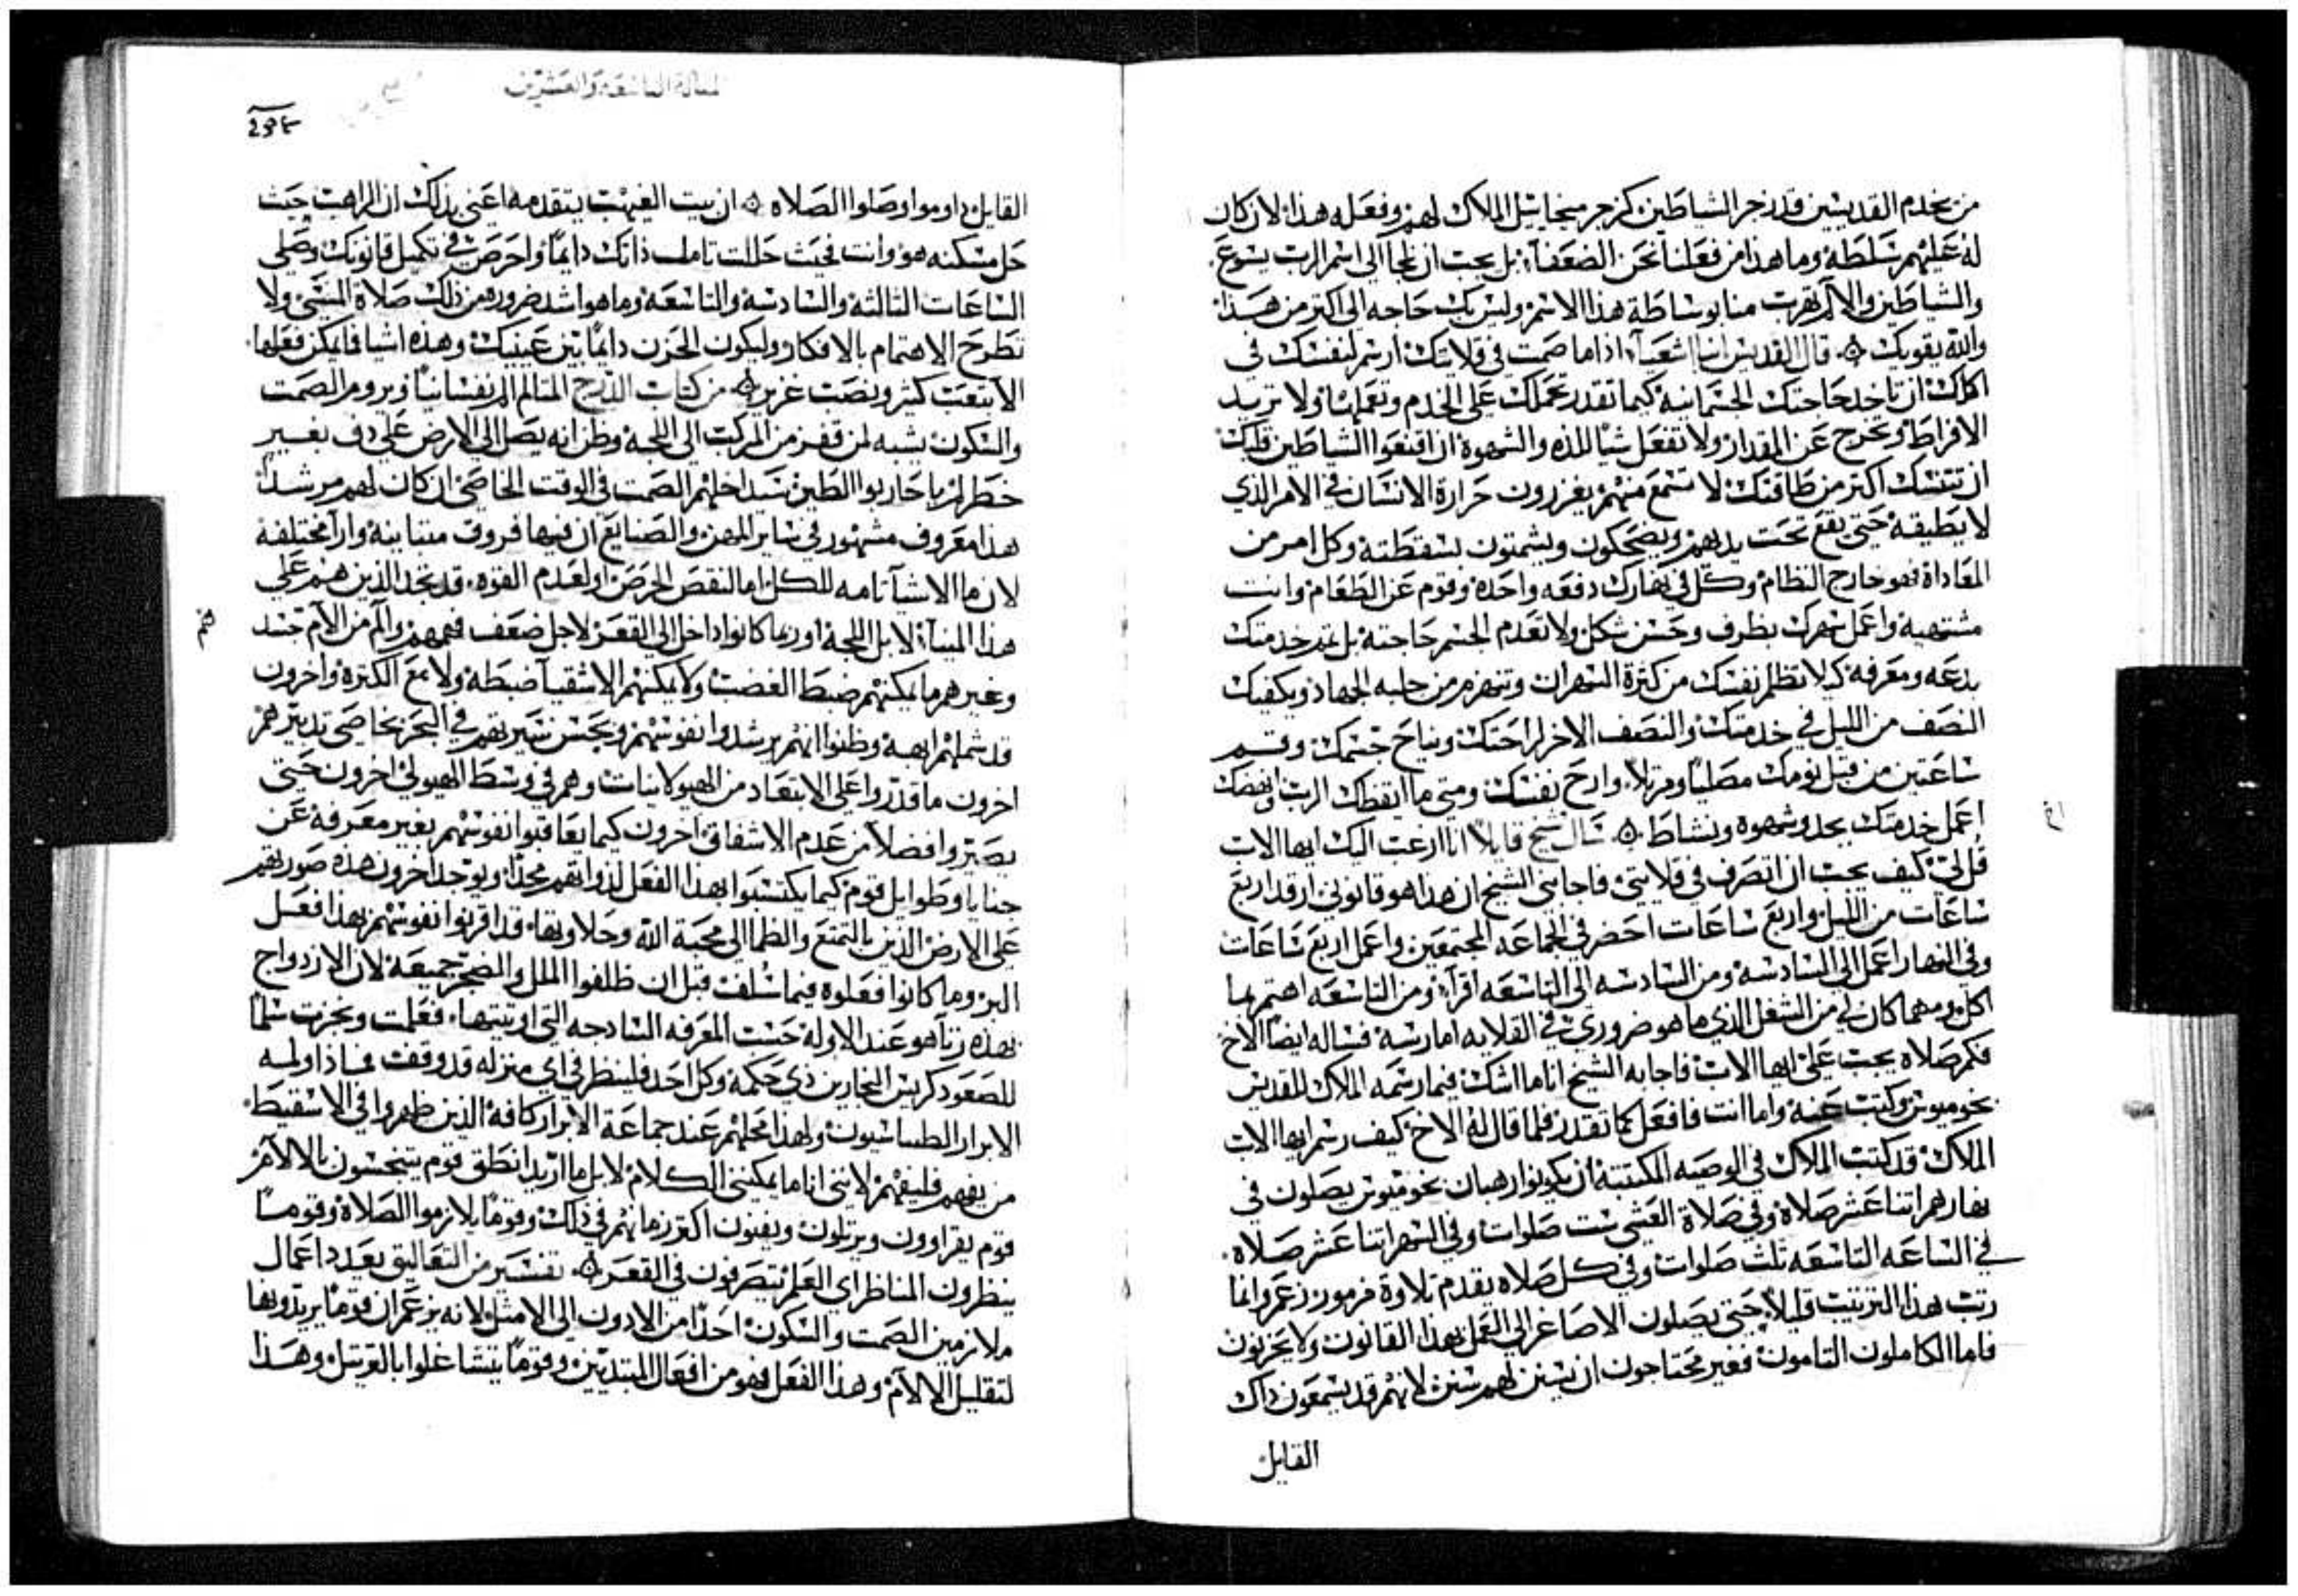 من يخدم القديسين قد زجر الشياطين كزجر ميخاييل الملاك لهم وفعله هذا لان كان
له عليهم سلطة وما هذا من فعلنا نحن الضعفآء بل يجب ان نلجآ الى اسم الرب يسوع
والشياطين والالام تهرب منا بوساطة هذا الاسم وليس بك حاجه الى اكتر من هذا
والله يقويك ۞ قال القديس انبا اشعيآء اذا ما صمت في قلايتك ارسم لنفسك في
اكلك ان تاخد حاجتك الجسمانية كيما تقدر تحملك على الخدم وتعملها ولا تريد
الافراط وتخرج عن المقدار ولا تفعل شياً للذه والشهوة ان اقنعوا الشياطين قلبك
ان تتنسك اكتر من طاقتك لا تسمع منهم يغزرون حرارة الانسان في الامر الذي
لا يطيقه حتى يقع تحت يديهم ويضحكون ويشمتون بسقطته وكل امر من
المعاداة فهو خارج النظام وكل في نهارك دفعه واحده وقوم عن الطعام وانت
مشتهيه واعمل سهرك بظرف وحسن شكل ولا تعدم الجسم حاجته بل تمد خدمتك
بدعه ومعرفة كيلا تظلم نفسك من كثرة السهران وتنهزم من حلبه الجهاد ويكفيك
النصف من الليل في خدمتك والنصف الاخر لراحتك ونياح جسمك وقسم
ساعتين من قبل نومك مصلياً ومرتلاً وارح نفسك ومتى ما ايقظك الرب وانهضك
اعمل خدمتك بجد وشهوه ونشاط ۞ سال شيخ قايلاً انا ارغب اليك ايها الاب
قل لي كيف يجب ان اتصرف في قلايتي فاجابني الشيخ ان هدا هو قانوني ارقد اربع
ساعات من الليل واربع ساعات احضر في الجماعه المجتمعين واعمل اربع ساعات
وفي النهار اعمل الى السادسة ومن السادسه الى التاسعه اقرآء ومن التاسعه اهتم بما
اكل ومهما كان لي من الشغل الذي ما هو ضروري في القلايه امارسة فساله ايضاً الاخ
فكم صلاه يجب علي ايها الاب فاجابه الشيخ انا ما اشك فيما رسمه الملاك للقديس
بخوميوس وكتب عنه واما انت فافعل كما تقدر فلما قال له الاخ كيف رسم ايها الاب
الملاك قد كتب الملاك في الوصيه المكتتبة ان يكونوا رهبان بخوميوس يصلون في
نهارهم اتنا عشر صلاة وفي صلاة العشي ست صلوات وفي السهر اتنا عشر صلاه
في الساعه التاسعه تلت صلوات وفي كل صلاه يقدم تلاوة فرمور زعم وانما
رتب بهذا الترتيب قليلاً حتى يصلون الاصاغر الى العمل بهذا القانون ولا يحزنون
فاما الكاملون التامون فغير محتاجون ان يسنن لهم سنن لانهم قد يسمعون داك
القايل
المقالة التاسعة والعشرين
القايل داوموا وصلوا الصلاه ۞ ان بيت الغيهب يتقدمه اعني بذلك ان الراهب حيث
حل مسكنه هو وانت فحيث حللت تامل ذاتك دايماً واحرص في تكميل قانونك وصلي
الساعات الثالثة والسادسة والتاسعة وما هو اشد ضروره من ذلك صلاة المسي ولا
تطرح الاهتمام بالافكار وليكون الحزن دايماً بين عينيك وهذه اشيا فما يمكن فعلها
الا بتعب كثير ونصب غزير ۞ من كتاب الدرج المتالم الم نفسانياً ويروم الصمت
والسكون يشبه لمن قفز من المركب الى اللجة وظن انه يصل الى الارض على دف بغير
خطر لن يا حاربوا الطين سيداخلهم الصمت في الوقت الخاص ان كان لهم مرشد
هذا معروف مشهور في ساير المهن والصنايع ان فيها فروق متباينة وارآ مختلفة
لان ما الاشيآ تامه للكل اما لنقص الحرص او لعدم القوه قد تجد الذين هم على
هذا المينآء لا بل اللجة او ربما كانوا داخل الى القعر لاجل ضعف فمهم والم من الام جسد
وغيرهم ما يمكنهم ضبط الغضب ولا يمكنهم الاشقيآ ضبطه ولا مع الكثرة واخرون
قد شملهم ابهة وظنوا انهم يرشدوا نفوسهم ويحسن سيرتهم في البحر بخاصي تدبيرهم
اخرون ما قدروا على الابتعاد من الهيولانيات وهم في وسط الهيولي اخرون حتى
يصيروا افضلاً من عدم الاشفاق اخرون كيما يعاقبوا نفوسهم بغير معرفة عن
جنايا وطوايل قوم كيما يكتسبوا بهذا الفعل لذواتهم مجداً ويوجد اخرون هذه صورتهم
على الارض الذين بالتمتع والظما الى محبة الله وحلاوتها قد اقرنوا نفوسهم بهذا فعل
البر وما كانوا فعلوه فيما سلف قبل ان طلفوا الملل والضجر جميعة لان الازدواج
بهذه زنآ هو عند الاوله حسب المعرفه السادجه التي اوتيتها فعلمت ونجزت سلماً
للصعود كريس النجارين ذي حكمة وكل احد فلينظر في اي منزله قد وقفت فماذا ولسه
الابرار الطيباسيون ولهذا محلهم عند جماعة الابرار كافة الذين ظهروا في الاسقيط
من يفهم فليفهم لانني انا ما يمكنني الكلام لا بل ما اريد انطق قوم يتنحسون بالالام
قوم يقراوون ويرتلون ويفنون اكثر زمانهم في ذلك وقوماً يلازموا الصلاة وقوماً
ينظرون المناظر اي العلم يتصرفون في القعر ۞ تفسير من التعاليق بعدد اعمال
ملازمين الصمت والسكون احداً من الادون الى الامثل لانه يزعم ان قوماً يريدونها
لتقليل الالام وهذا الفعل فهو من افعال المبتديين وقوماً يتشاغلوا بالترتيل وهذا